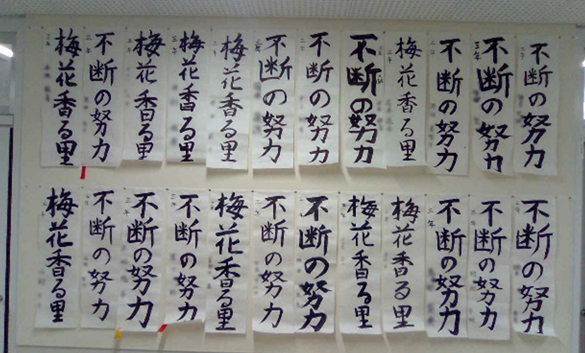 不断の努力
不断の努力
不断の努力
梅花香る里
不断の努力
不断の努力
不断の努力
梅花香る里
梅花香る里
梅花香る里
不断の努力
梅花香る里
不断の努力
不断の努力
不断の努力
梅花香る里
梅花香る里
不断の努力
不断の努力
梅花香る里
不断の努力
不断の努力
不断の努力
梅花香る里